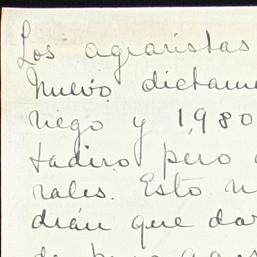 Los agraristas
Nuevo dictame
riego y 1,980
tadero pero
rales. Esto n
drán que dar